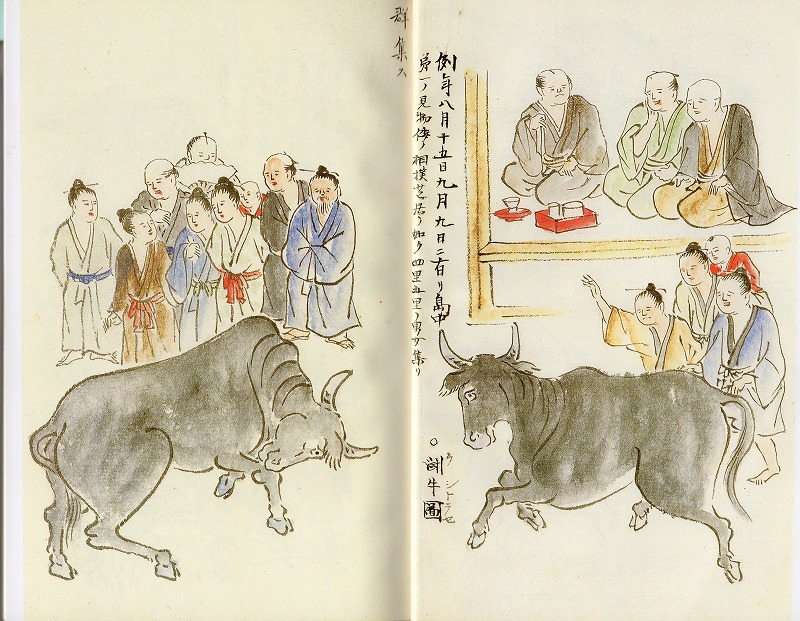 例年八月十五日九月九日ニ有リ島中
第一ノ見物倭ノ相撲芝居ノ如ク四里五里ノ男女集リ
群集ス
○闘牛圖
ウシトラセ